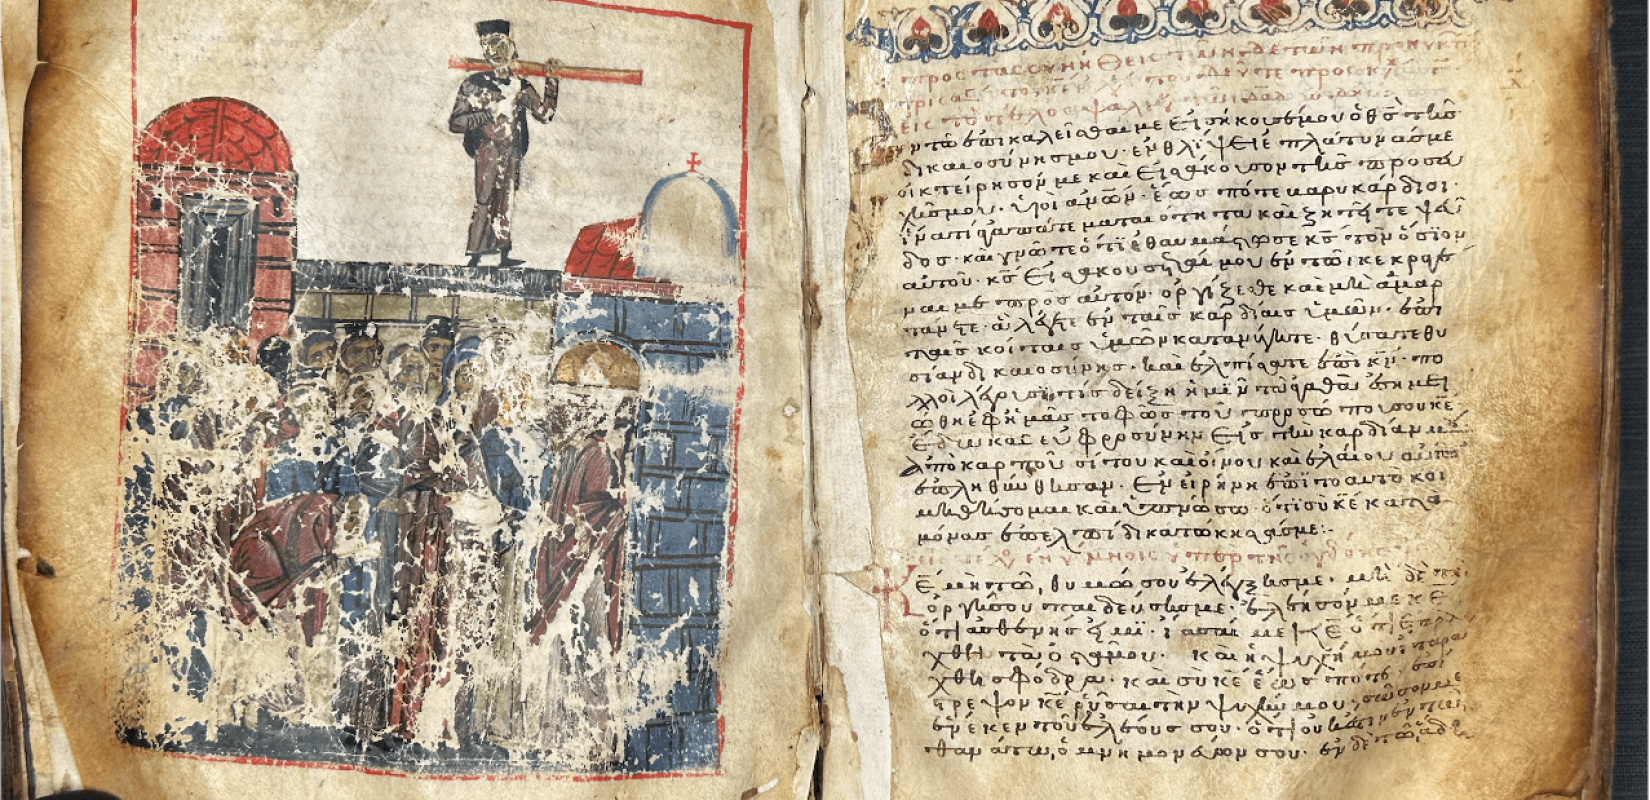 ἐν τῷ ἐπικαλεῖσθαί με εἰσήκουσέ μου ὁ θς τῆς
δικαιοσύνης μου· ἐν θλίψει ἐπλάτυνάς με
οἰκτείρησόν με καὶ εἰσάκουσον τῆς προσευ
χῆς μου· ὑιοὶ ἀνων· ἕως πότε βαρυκάρδιοι·
ἵνα τί ἀγαπᾶτε ματαιότητα καὶ ζητεῖτε ψεῦ
δος· καὶ γνῶτε ὅτι ἐθαυμάστωσε κς τὸν ὅσιον
αὐτοῦ· κς εἰσακούσεταί μου ἐν τῷ κεκραγέ
ναι με προς αὐτόν· ὀργίζεσθε καὶ μὴ ἁμαρ
τάνετε· ἃ λέγετε ἐν ταῖς καρδίαις ὑμῶν· ἐπὶ
ταῖς κοίταις ὑμῶν κατανύγητε· θύσατε θυ
σίαν δικαιοσύνης· καὶ ἐλπίσατε ἐπὶ κν· πο
λλοὶ λέγουσι τίς δείξει ἡμῖν τὰ ἀγαθὰ· ἐσημει
ώθη ἐφ ἡμᾶς τὸ φῶς τοῦ προσώπου σου κε
ἔδωκας εὐφροσύνην εἰς τὴν καρδίαν μου
ἀπὸ καρποῦ σίτου καὶ οἴνου καὶ ἐλαίου αὐτῶν
ἐπληθύνθησαν· ἐν εἰρήνη ἐπὶ τὸ αὐτὸ κοι
μηθήσομαι καὶ ὑπνώσω· ὅτι σὺ κε κατα
μόνας ἐπ ἐλπίδι κατώκησάς με:-
ἐν ὕμνοις ὑπὲρ τῆς ὀγδόης
κε μὴ τῷ θυμῷ σου ἐλέγξης με· μὴ δὲ τῆ
ὀργῆ σου παιδεύσης με· ἐλέησόν με κε
ὅτι ἀσθενής εἰμι· ἴασαί με κε ὅτι ἐταρά
χθη τὰ ὀστᾶ μου· καὶ ἡ ψυχή μου ἐταρά
χθη σφόδρα· καὶ σὺ κε ἕως πότε· ἐπί
στρεψον κε ῥῦσαι τὴν ψυχήν μου· σῶσόν με
ἕνεκεν τοῦ ἐλέους σου· ὅτι οὐκ ἔστιν ἐν τῷ
θανάτω, ὁ μνημονεύων σου· ἐν δὲ τῷ ἅδη